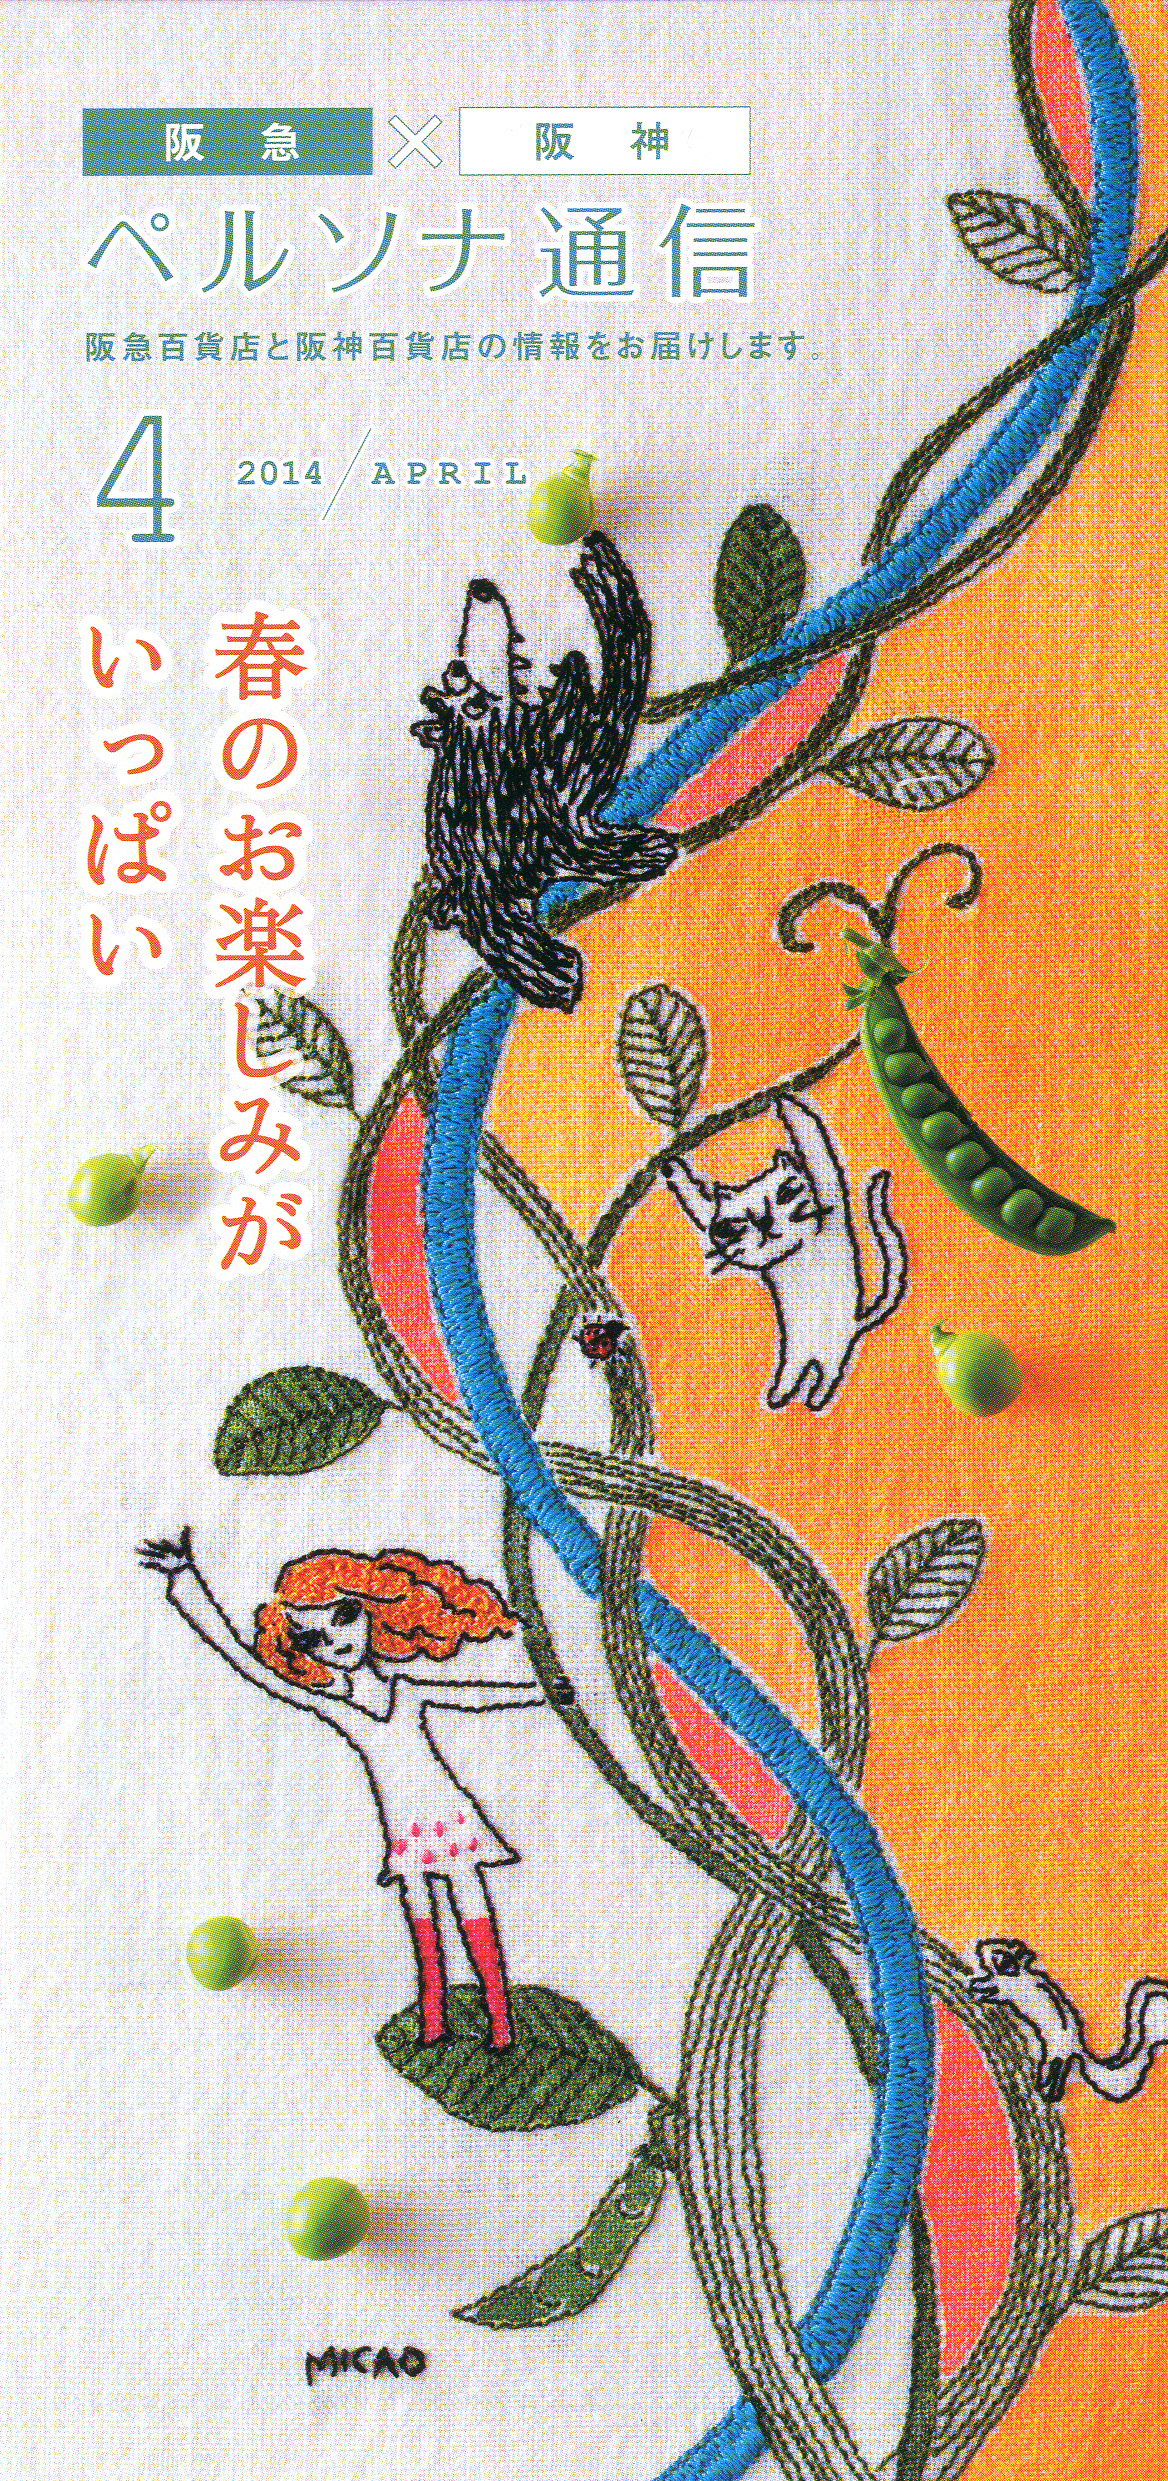 阪急×阪神
ペルソナ通信
阪急百貨店と阪神百貨店の情報をお届けします。
4 2014/APRIL
春のお楽しみが
いっぱい
MICAO